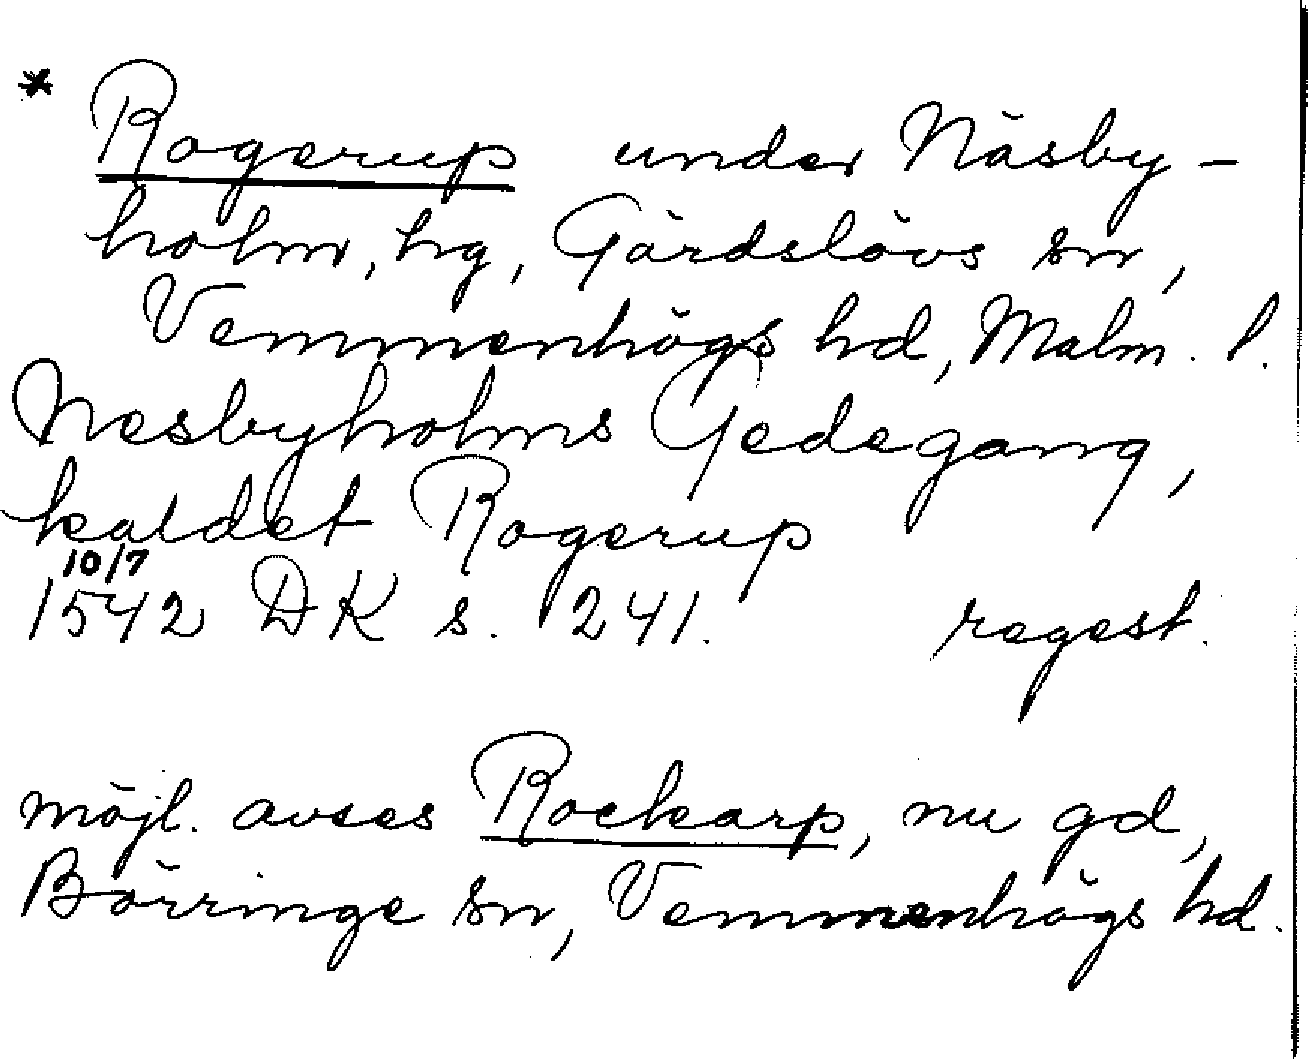 * Rogerup under Näsby-
holm, hg, Gärdslövs sn,
Vemmenhögs hd, Malm. l.
Nesbyholms Gedegang,
kaldet Rogerup
10/7
1542 DK s. 241. regest.
möjl. avses Rockarp, nu gd,
Börringe sn, Vemmenhögs hd.